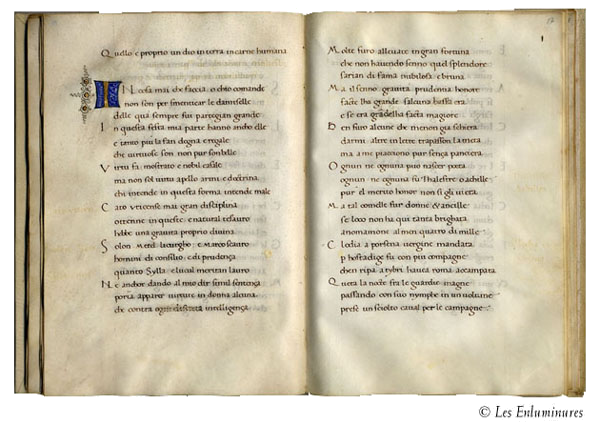 Quello e proprio un dio in terra in carne humana
IN cosa mai che faccia o chio comande
non son per smenticar le damiselle
delle qua sempre fui partegian grande
In questa festa mia parte hanno anchoelle
e tanto piu la fan degna e regale
che virtuose son non pur son belle
Virtu fu mostrato e nobel casale
ma non sol vinta apollo armi e doctrina
chi intende in questa forma intende male
Cato uticense mai gran disciplina
ottenne in queste e natural tesauro
hebbe una gravita proprio divina
Solon Merd licurgho e Marco scauro
homini di consilio e di prudenza
quanto Sylla el qual meritan lauro
Ne anchor dando al mio dir simil sentenza
poria apparer virture in donna alcuna
che contra ogni intelligença
Molte furo allevate in gran fortuna
che non havendo senno quel splendore
sarian di fama nubilosa e bruna
Ma il senno gravita prudenza honore
facte lha grande salcuna bassa era
e se era grãde lha facta magiore
Ben furo alcune che menon gia schiera
darmi altre in letre trapasson la meta
ma a me piacciono pur senza panciera
Ognun ne cognuna puo non esser poeta
ognun ne cognuna fu Thalestre o achille
pur el merito honor non si gli vieta
Ma tal comelle fur donne & ancille
se loco non ha qui tanta brighata
anomamone al men quatro di mille
Clodia a porsena vergine mandata
p hostadige fu con piu compagne
chen ripa a tybri haveva roma accampata
Queta la nocte fra le guardie magne
passando con suo nymphe in un volume
prese un sciolto canal per le campagne
© Les Enluminures